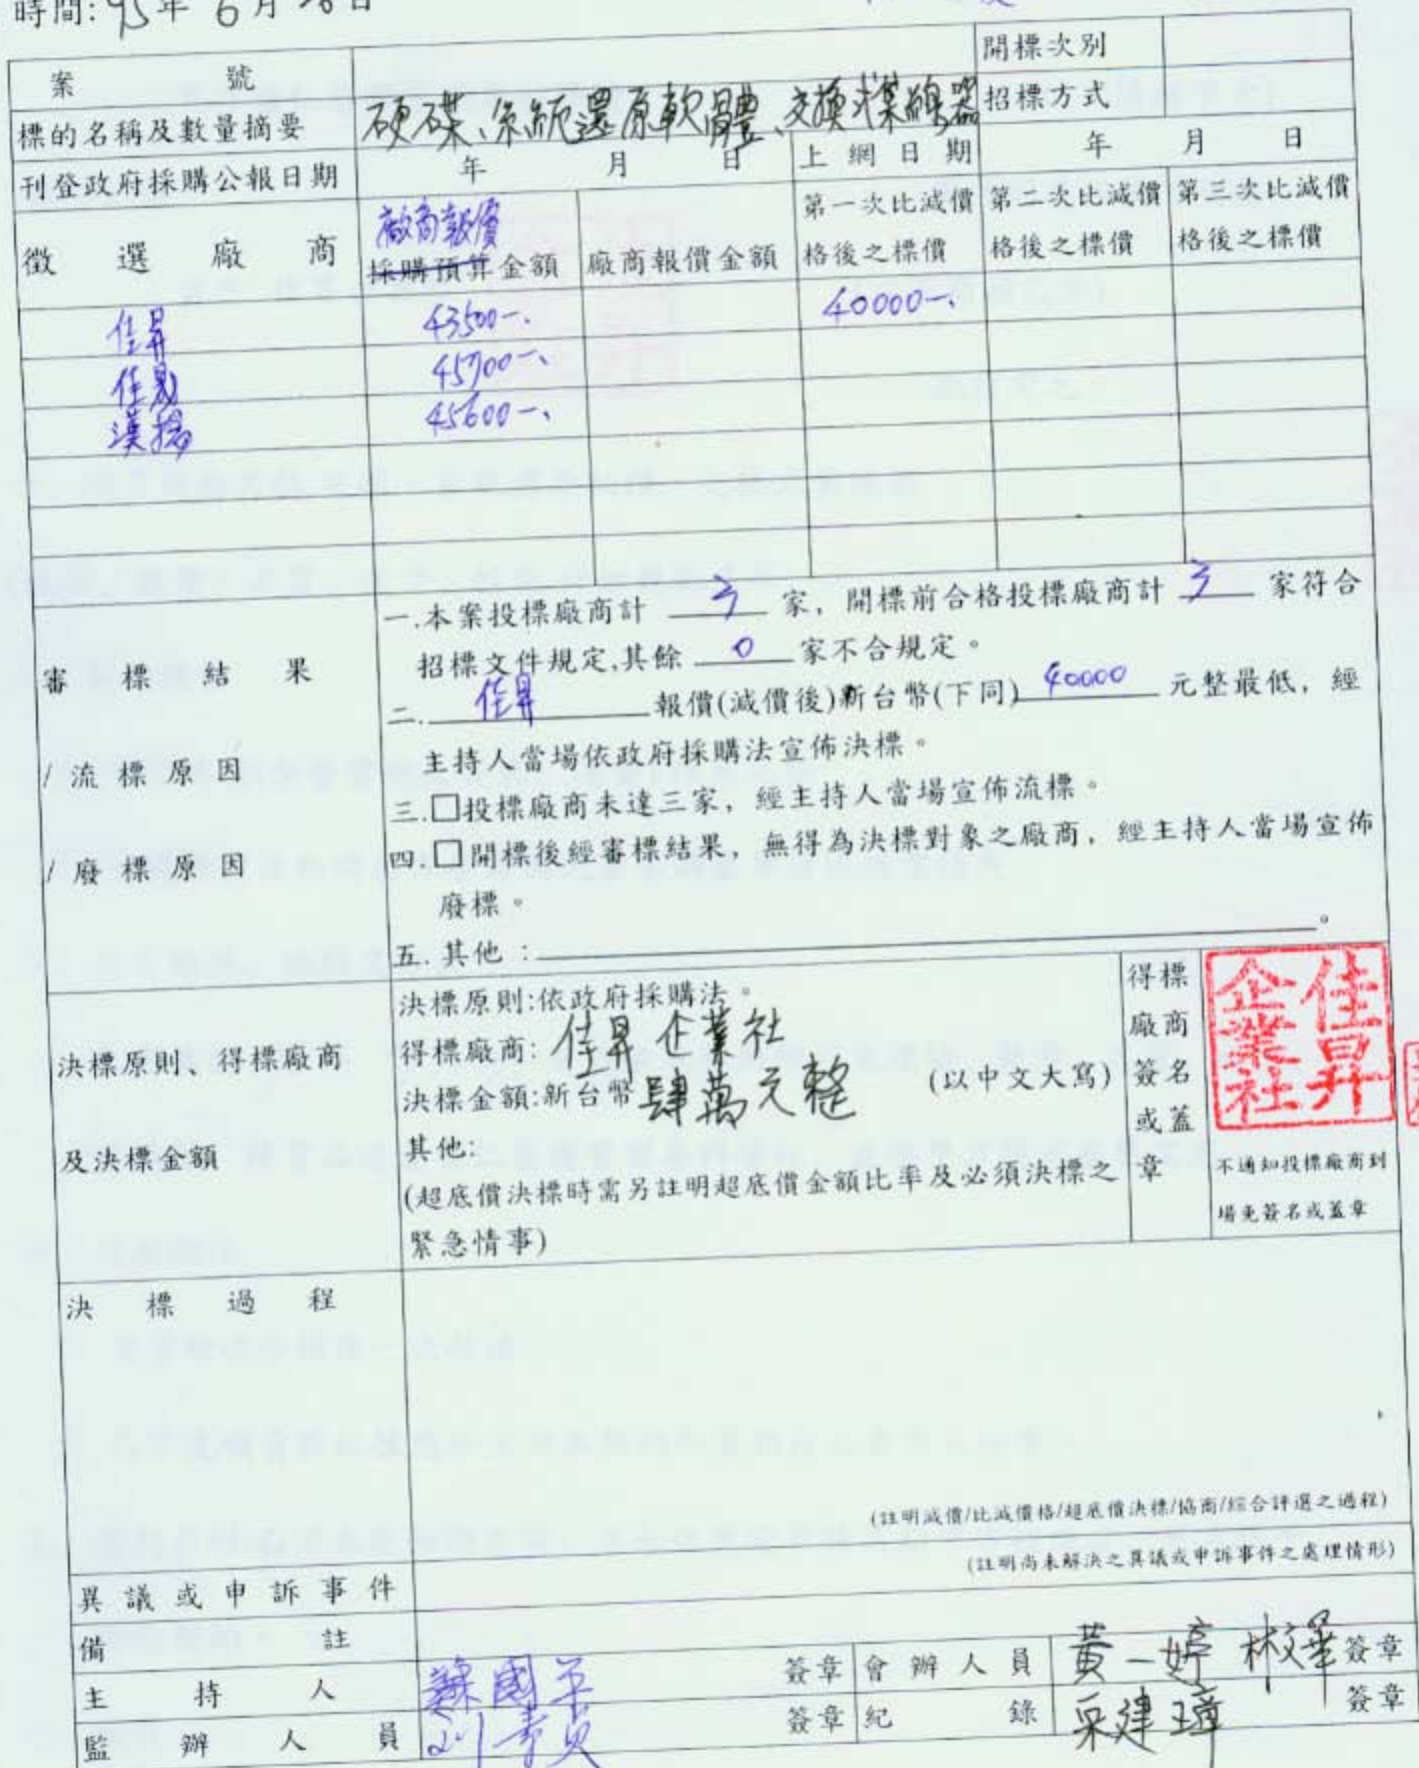 時間:95年6月 日
案號
開標次別
標的名稱及數量摘要 硬碟、系統還原軟體、交換式集線器 招標方式
刊登政府採購公報日期 年 月 日 上網日期 年 月 日
徵選廠商 廠商報價 採購預算金額 廠商報價金額 第一次比減價格後之標價 第二次比減價格後之標價 第三次比減價格後之標價
佳昇 43500-、 40000-、
佳晟 45700-、
漢揚 45600-、
審標結果
/流標原因
/廢標原因
一.本案投標廠商計 3 家,開標前合格投標廠商計 3 家符合
招標文件規定,其餘 0 家不合規定。
二. 佳昇 報價(減價後)新台幣(下同) 40000 元整最低,經
主持人當場依政府採購法宣佈決標。
三.□投標廠商未達三家,經主持人當場宣佈流標。
四.□開標後經審標結果,無得為決標對象之廠商,經主持人當場宣佈
廢標。
五.其他: 。
決標原則、得標廠商
及決標金額
決標原則:依政府採購法。
得標廠商:佳昇企業社
決標金額:新台幣肆萬元整 (以中文大寫)
其他:
(超底價決標時需另註明超底價金額比率及必須決標之
緊急情事)
得標
廠商
簽名
或蓋
章
佳昇
企業社
不通知投標廠商到
場免簽名或蓋章
決標過程
(註明減價/比減價格/超底價決標/協商/綜合評選之過程)
(註明尚未解決之異議或申訴事件之處理情形)
異議或申訴事件
備註
主持人 國 簽章 會辦人員 黃一婷 林文華 簽章
監辦人員 簽章 紀錄 建璋 簽章